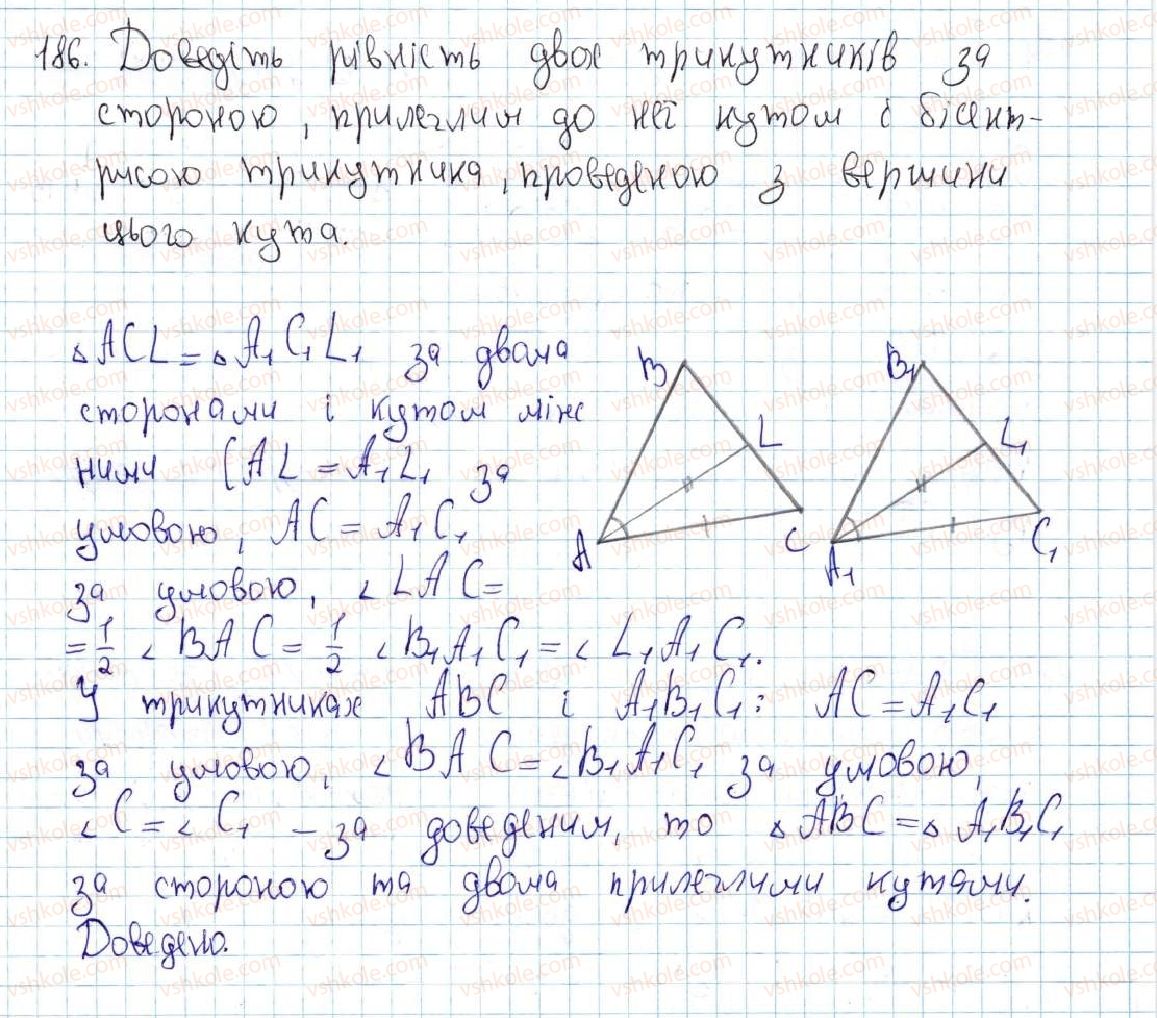 186. Доведіть рівність двох трикутників за
стороною, прилеглим до неї кутом і бісект-
рисою трикутника, проведеною з вершини
цього кута.
△ACL = △A₁C₁L₁ за двома
сторонами і кутом між
ними (AL = A₁L₁ за
умовою, AC = A₁C₁
за умовою, ∠LAC =
= 1/2 ∠BAC = 1/2 ∠B₁A₁C₁ = ∠L₁A₁C₁.
У трикутниках ABC і A₁B₁C₁: AC = A₁C₁
за умовою, ∠BAC = ∠B₁A₁C₁ за умовою,
∠C = ∠C₁ – за доведеним, то △ABC = △A₁B₁C₁
за стороною та двома прилеглими кутами.
Доведено.
B
L
A
C
B₁
L₁
A₁
C₁
vshkole.com